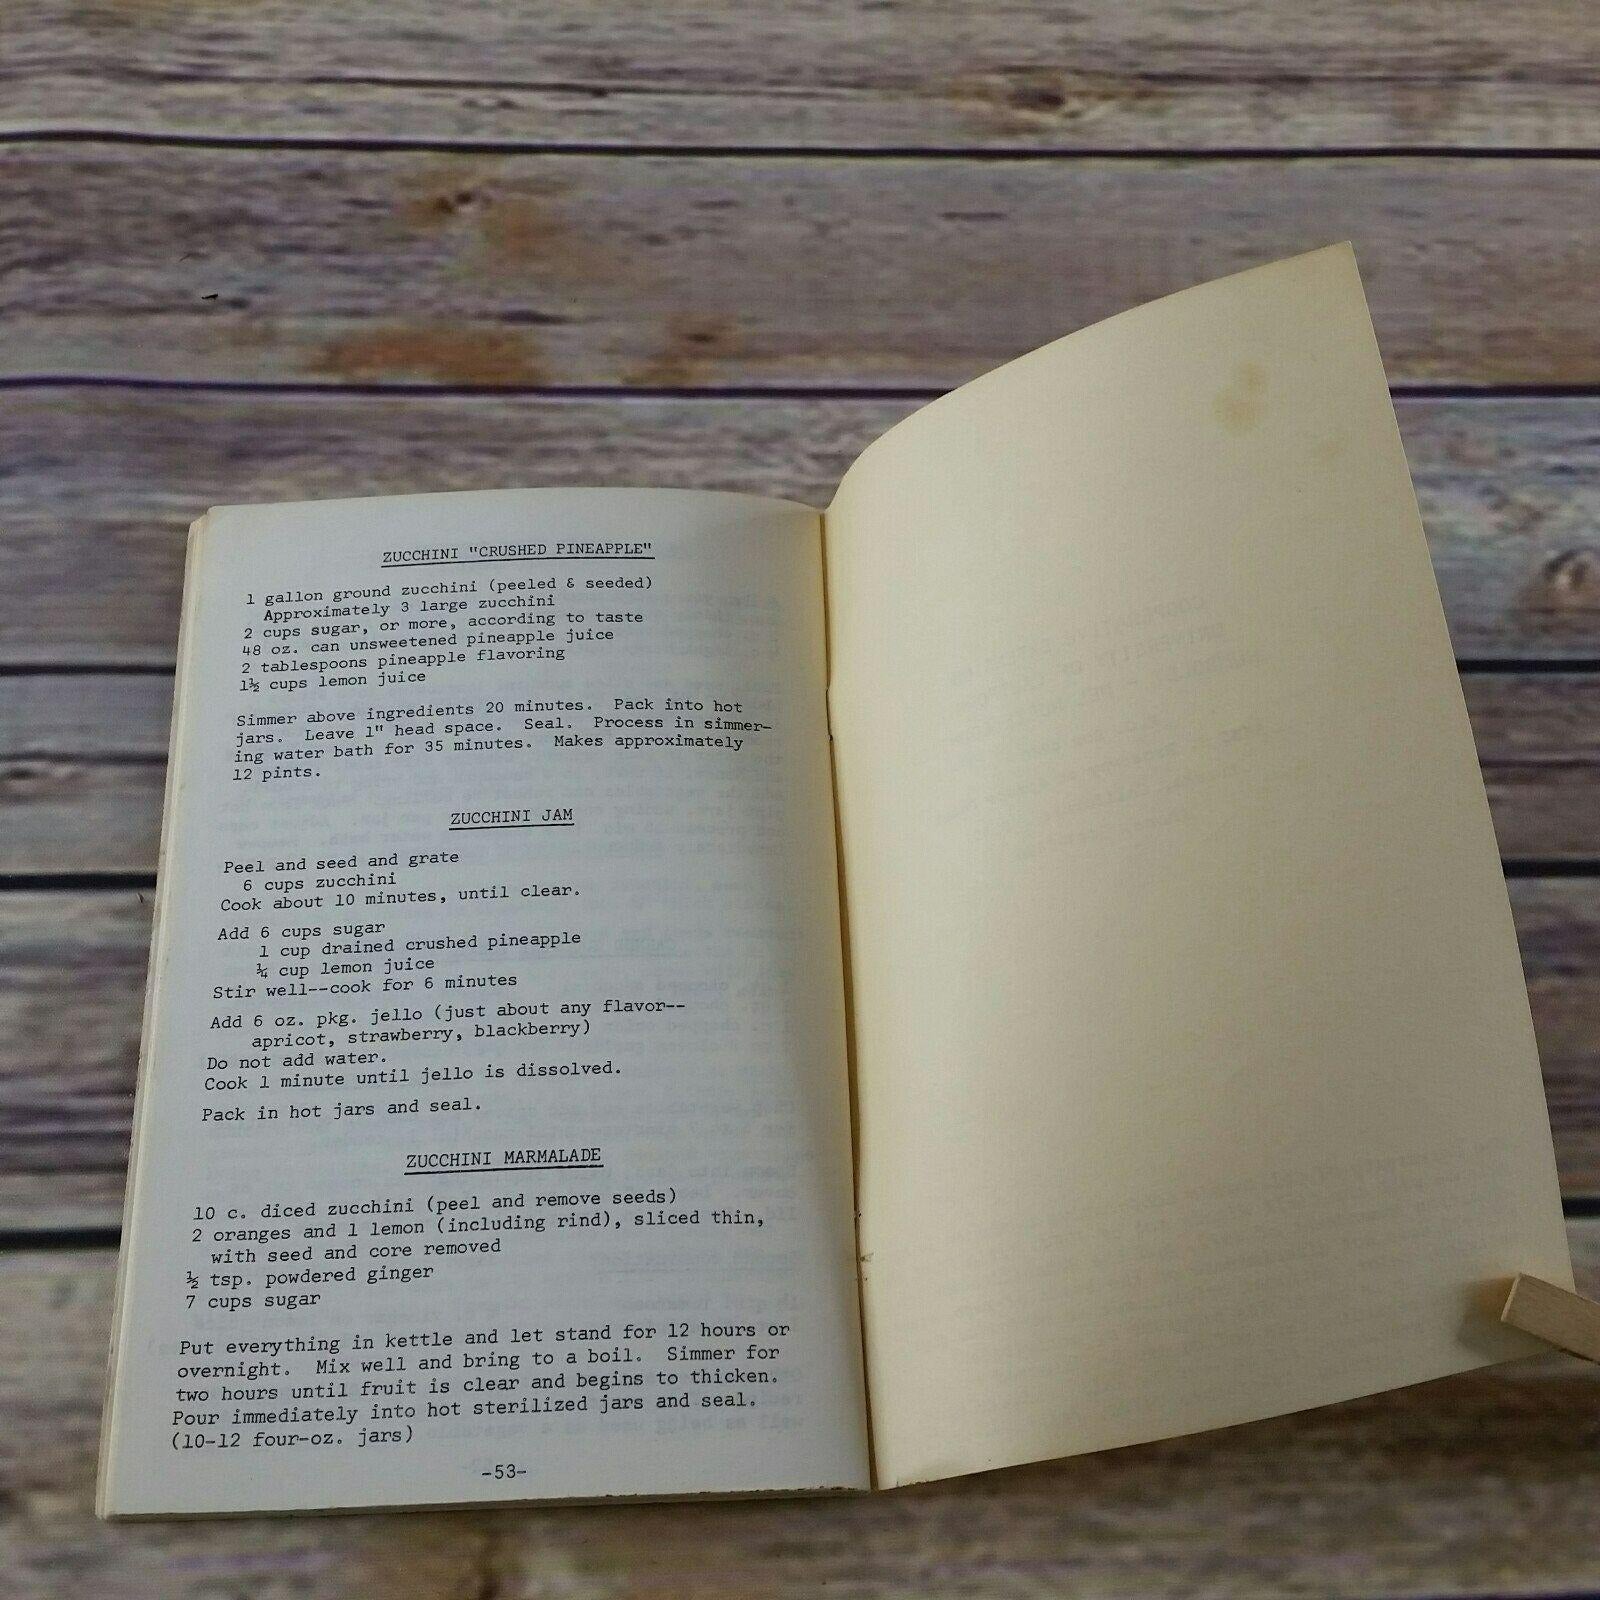 ZUCCHINI "CRUSHED PINEAPPLE"
1 gallon ground zucchini (peeled & seeded)
Approximately 3 large zucchini
2 cups sugar, or more, according to taste
48 oz. can unsweetened pineapple juice
2 tablespoons pineapple flavoring
1½ cups lemon juice
Simmer above ingredients 20 minutes. Pack into hot
jars. Leave 1" head space. Seal. Process in simmer-
ing water bath for 35 minutes. Makes approximately
12 pints.
ZUCCHINI JAM
Peel and seed and grate
6 cups zucchini
Cook about 10 minutes, until clear.
Add 6 cups sugar
1 cup drained crushed pineapple
¼ cup lemon juice
Stir well--cook for 6 minutes
Add 6 oz. pkg. jello (just about any flavor--
apricot, strawberry, blackberry)
Do not add water.
Cook 1 minute until jello is dissolved.
Pack in hot jars and seal.
ZUCCHINI MARMALADE
10 c. diced zucchini (peel and remove seeds)
2 oranges and 1 lemon (including rind), sliced thin,
with seed and core removed
½ tsp. powdered ginger
7 cups sugar
Put everything in kettle and let stand for 12 hours or
overnight. Mix well and bring to a boil. Simmer for
two hours until fruit is clear and begins to thicken.
Pour immediately into hot sterilized jars and seal.
(10-12 four-oz. jars)
-53-